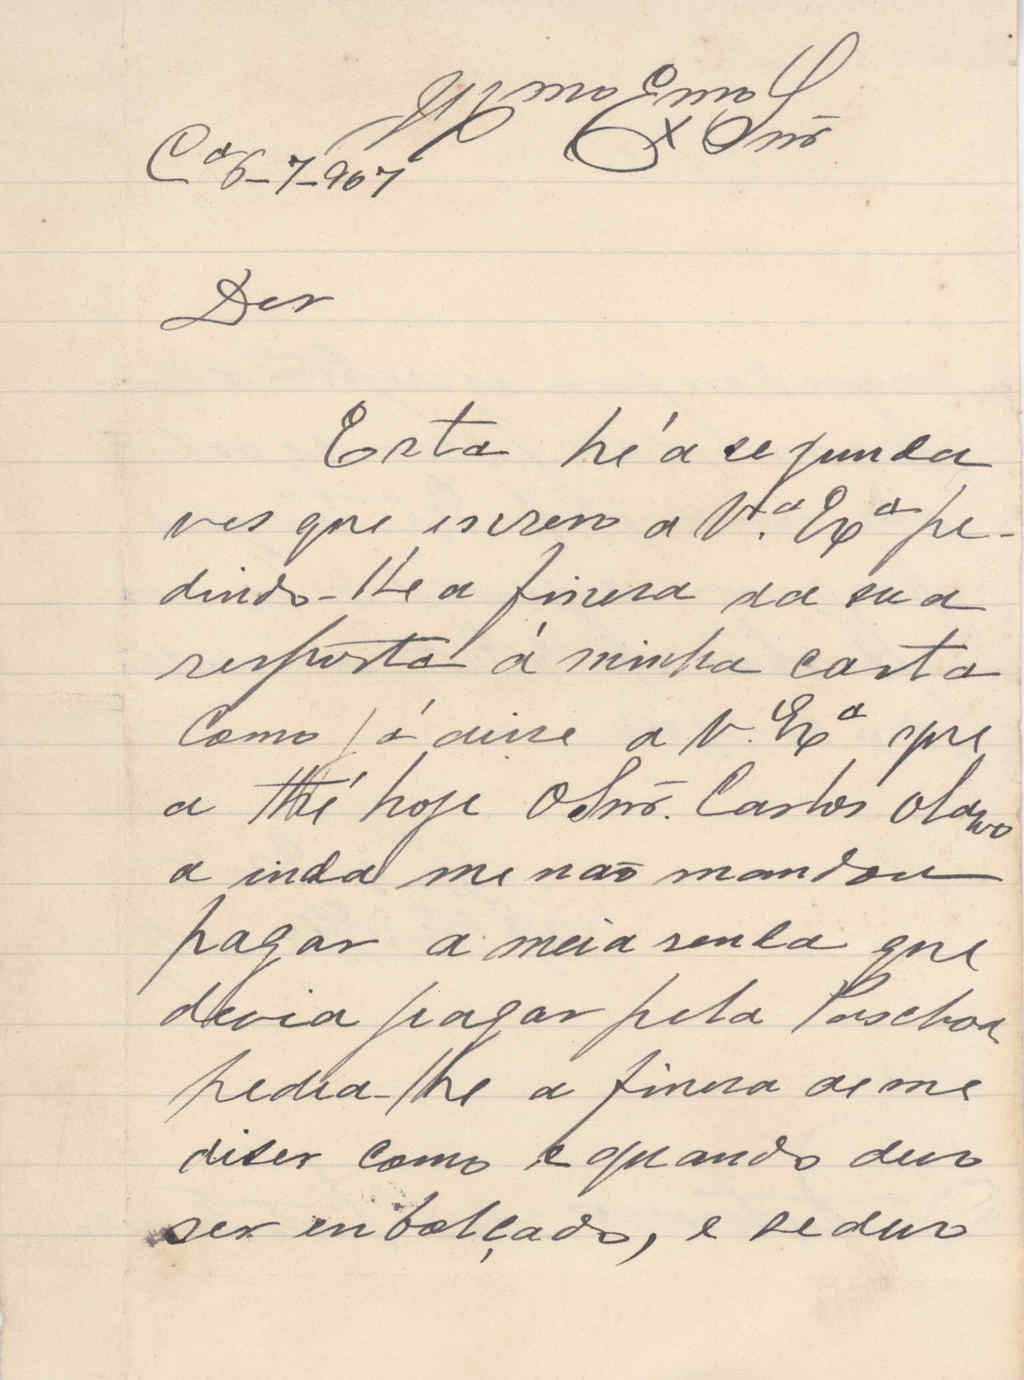 Illmo Exmo Snr
Ca 6-7-907
Der
Esta hé a segunda
ves que escrevo a V.ª Exª pe-
dindo-lhe a finesa da sua
resposta á minha carta
Como já disse a V. Exª que
a thé hoje O Snr. Carlos Olavo
a inda me não mandou
pagar a meia renda que
devia pagar pela Paschoa
pedia-lhe a finesa de me
diser como e quando devo
ser enbolçado, e se devo